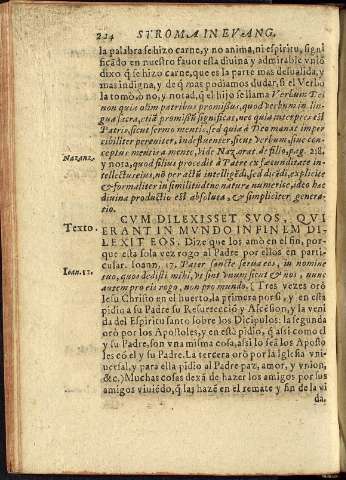 224 STROMA IN EVANG.
la palabra se hizo carne, y no anima, ni espiritu, signi
ficãdo en nuestro favor esta divina y admirable vniõ
dixo q̃ se hizo carne, que es la parte mas desualida, y
mas indigna, y de q̃ mas podiamos dudar, si el Verbo
la tomò, ò no, y notad, q̃ el hijo se llama Verbum Dei
non quia olim patribus promissus, quod verbum in lin-
gua sacra, etiã promissũ significas, nec quia inceperit esse
Patris, sicut sermo mentis, sed quia à Deo manat imper
cibiliter pervenit, indefluenter, sicut Verbum, sine con-
ceptus mentis à mente, vide Naz. orat. de filio, pag. 218.
Nazanz.
y nota, quod filius procedit à Patre ex fæcunditate in-
tellectus eius, nõ per actũ intelligẽdi, sed dicẽdi, explicitè
& formaliter in similitudinẽ naturæ numericæ, ideo hæc
divina productio est absoluta, & simpliciter genera-
tio.
Texto.
CVM DILEXISSET SVOS, QVI
ERANT IN MVNDO IN FINEM DI-
LEXIT EOS. Dize que los amò en el fin, por-
que esta sola vez rogo al Padre por ellos en parti-
cular. Ioann. 17. Pater sancte serva eos, in nomine
Ioan. 17.
tuo, quos dedisti mihi, vt sint vnum sicut & nos, nunc
autem pro eis rogo, non pro mundo. (Tres vezes orò
Iesu Christo en el huerto, la primera por si, y en esta
pidio a su Padre su Resurrecciõ y Ascẽsion, y la veni
da del Espiritu santo sobre los Dicipulos: la segunda
orò por los Apostoles, y en està pidio, q̃ assi como el
y su Padre, son vna misma cosa, assi lo seã los Aposto
les cõ el y su Padre. La tercera orò por la Iglesia vni-
versal, y para ella pidio al Padre paz, amor, y vnion,
&c.) Muchas cosas dexã de hazer los amigos por sus
amigos viuiẽdo, q̃ las hazẽ en el remate y fin de la vi
da.